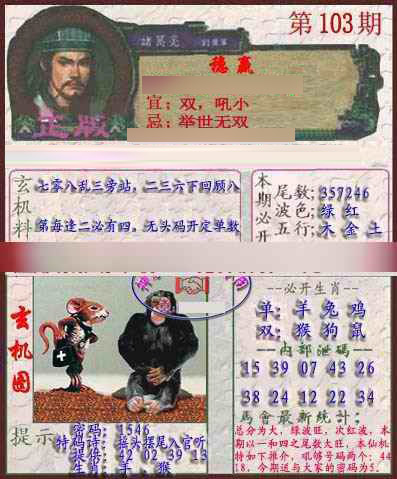 第103期
諸葛亮
穩贏
宜：双，吼小
正版
忌：举世无双
玄机料
七零八乱三旁站，二三六下回顾八
第海逢二必有四。无头码开定单数
本期必开
尾数：357246
波色：绿 红
五行：木 金 土
玄机图
--必开生肖--
单：羊 兔 鸡
双：猴 狗 鼠
--内部泄码--
15 39 07 43 26
38 24 12 22 34
馬會最新統計：
总分为大，绿波旺，次红波，本
期以一和四之尾数大旺，本仙机
特如下推介，吼够号码两个：44
18，今期送与大家的密码为5。
提示
密码：1546
特码诗：摇头摆尾入官听
提得：42 02 39 13
生肖：羊、猴